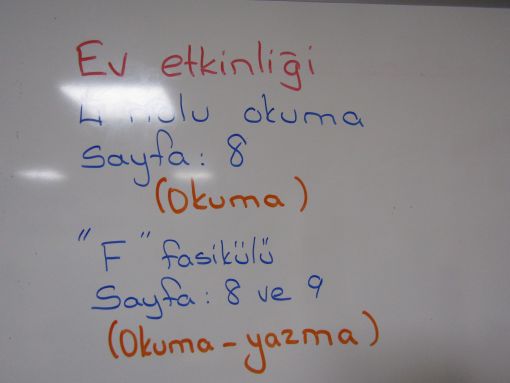 Ev etkinliği
okuma
Sayfa: 8
(Okuma)
"F" fasikülü
Sayfa: 8 ve 9
(Okuma - yazma)